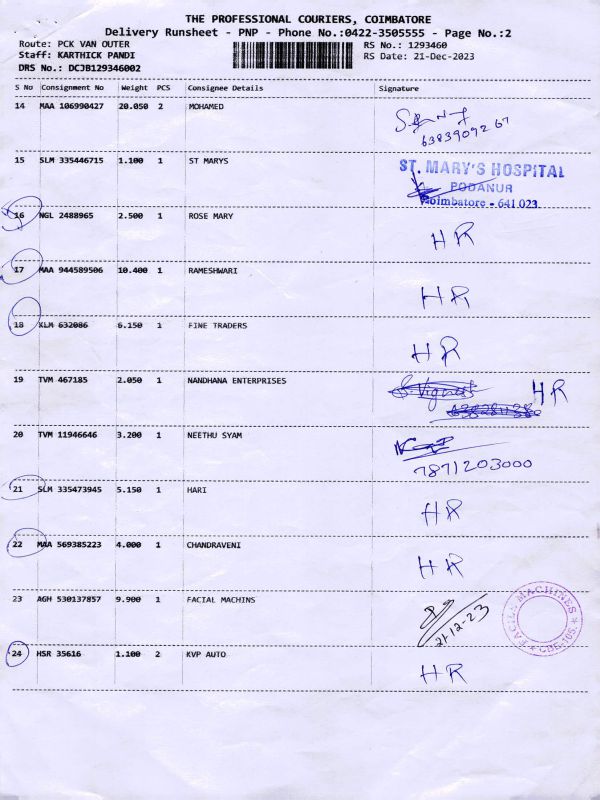 THE PROFESSIONAL COURIERS, COIMBATORE
Delivery Runsheet - PNP - Phone No.:0422-3505555 - Page No.:2
Route: PCK VAN OUTER RS No.: 1293460
Staff: KARTHICK PANDI RS Date: 21-Dec-2023
DRS No.: DCJB129346002
S No Consignment No Weight PCS Consignee Details Signature
14 MAA 106990427 20.050 2 MOHAMED
6383909267
15 SLM 335446715 1.100 1 ST MARYS ST. MARY'S HOSPITAL
PODANUR
Coimbatore - 641 023
16 NGL 2488965 2.500 1 ROSE MARY HR
17 MAA 944589506 10.400 1 RAMESHWARI HR
18 KLM 632086 6.150 1 FINE TRADERS HR
19 TVM 467185 2.050 1 NANDHANA ENTERPRISES HR
20 TVM 11946646 3.200 1 NEETHU SYAM
7871203000
21 SLM 335473945 5.150 1 HARI HR
22 MAA 569385223 4.000 1 CHANDRAVENI HR
23 AGH 530137857 9.900 1 FACIAL MACHINS
21-12-23
FACILE MACHINES
* CBE-105. *
24 HSR 35616 1.100 2 KVP AUTO HR